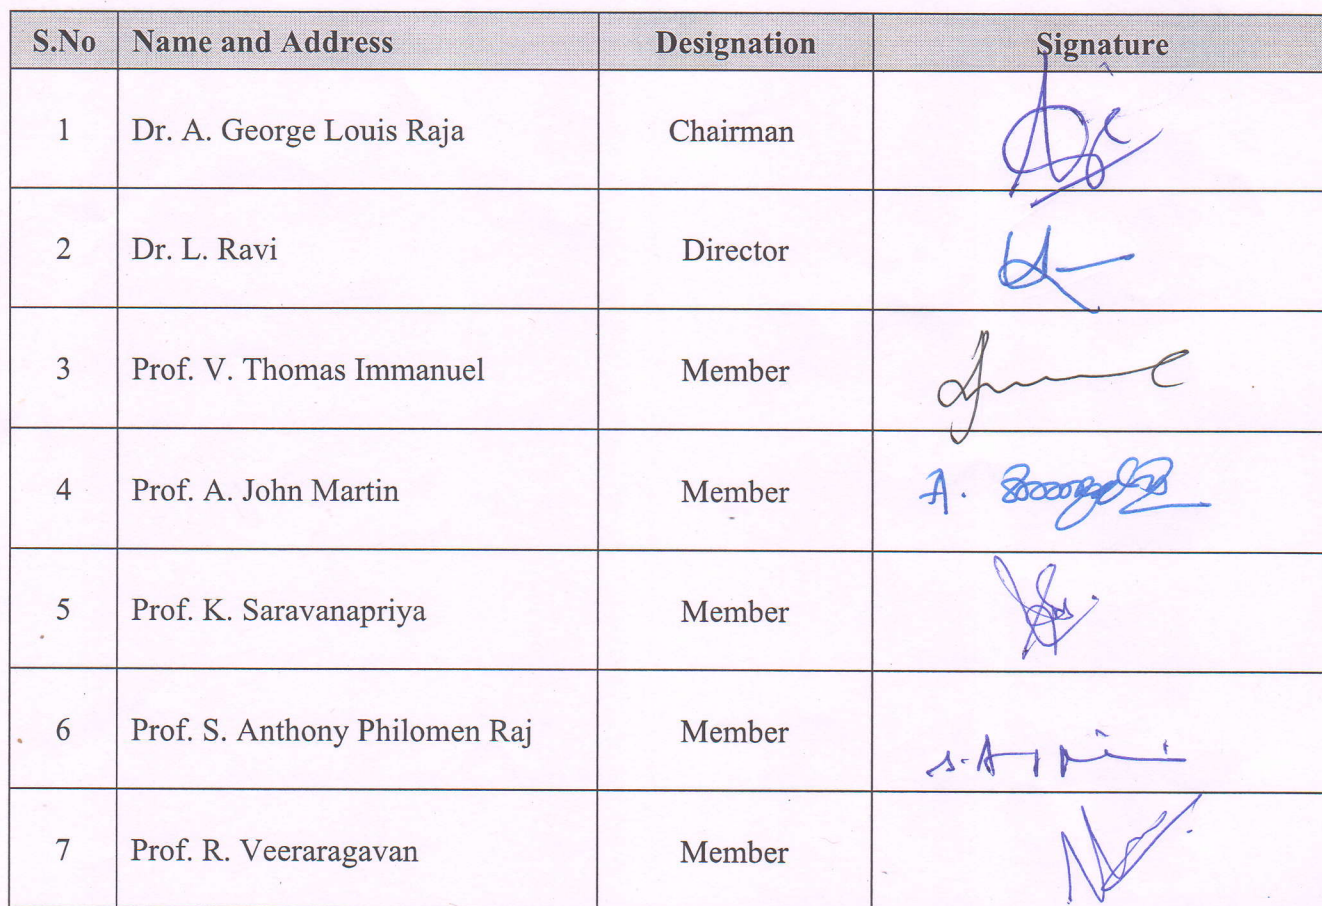 S.No Name and Address Designation Signature
1 Dr. A. George Louis Raja Chairman
2 Dr. L. Ravi Director
3 Prof. V. Thomas Immanuel Member
4 Prof. A. John Martin Member A.
5 Prof. K. Saravanapriya Member
6 Prof. S. Anthony Philomen Raj Member
7 Prof. R. Veeraragavan Member